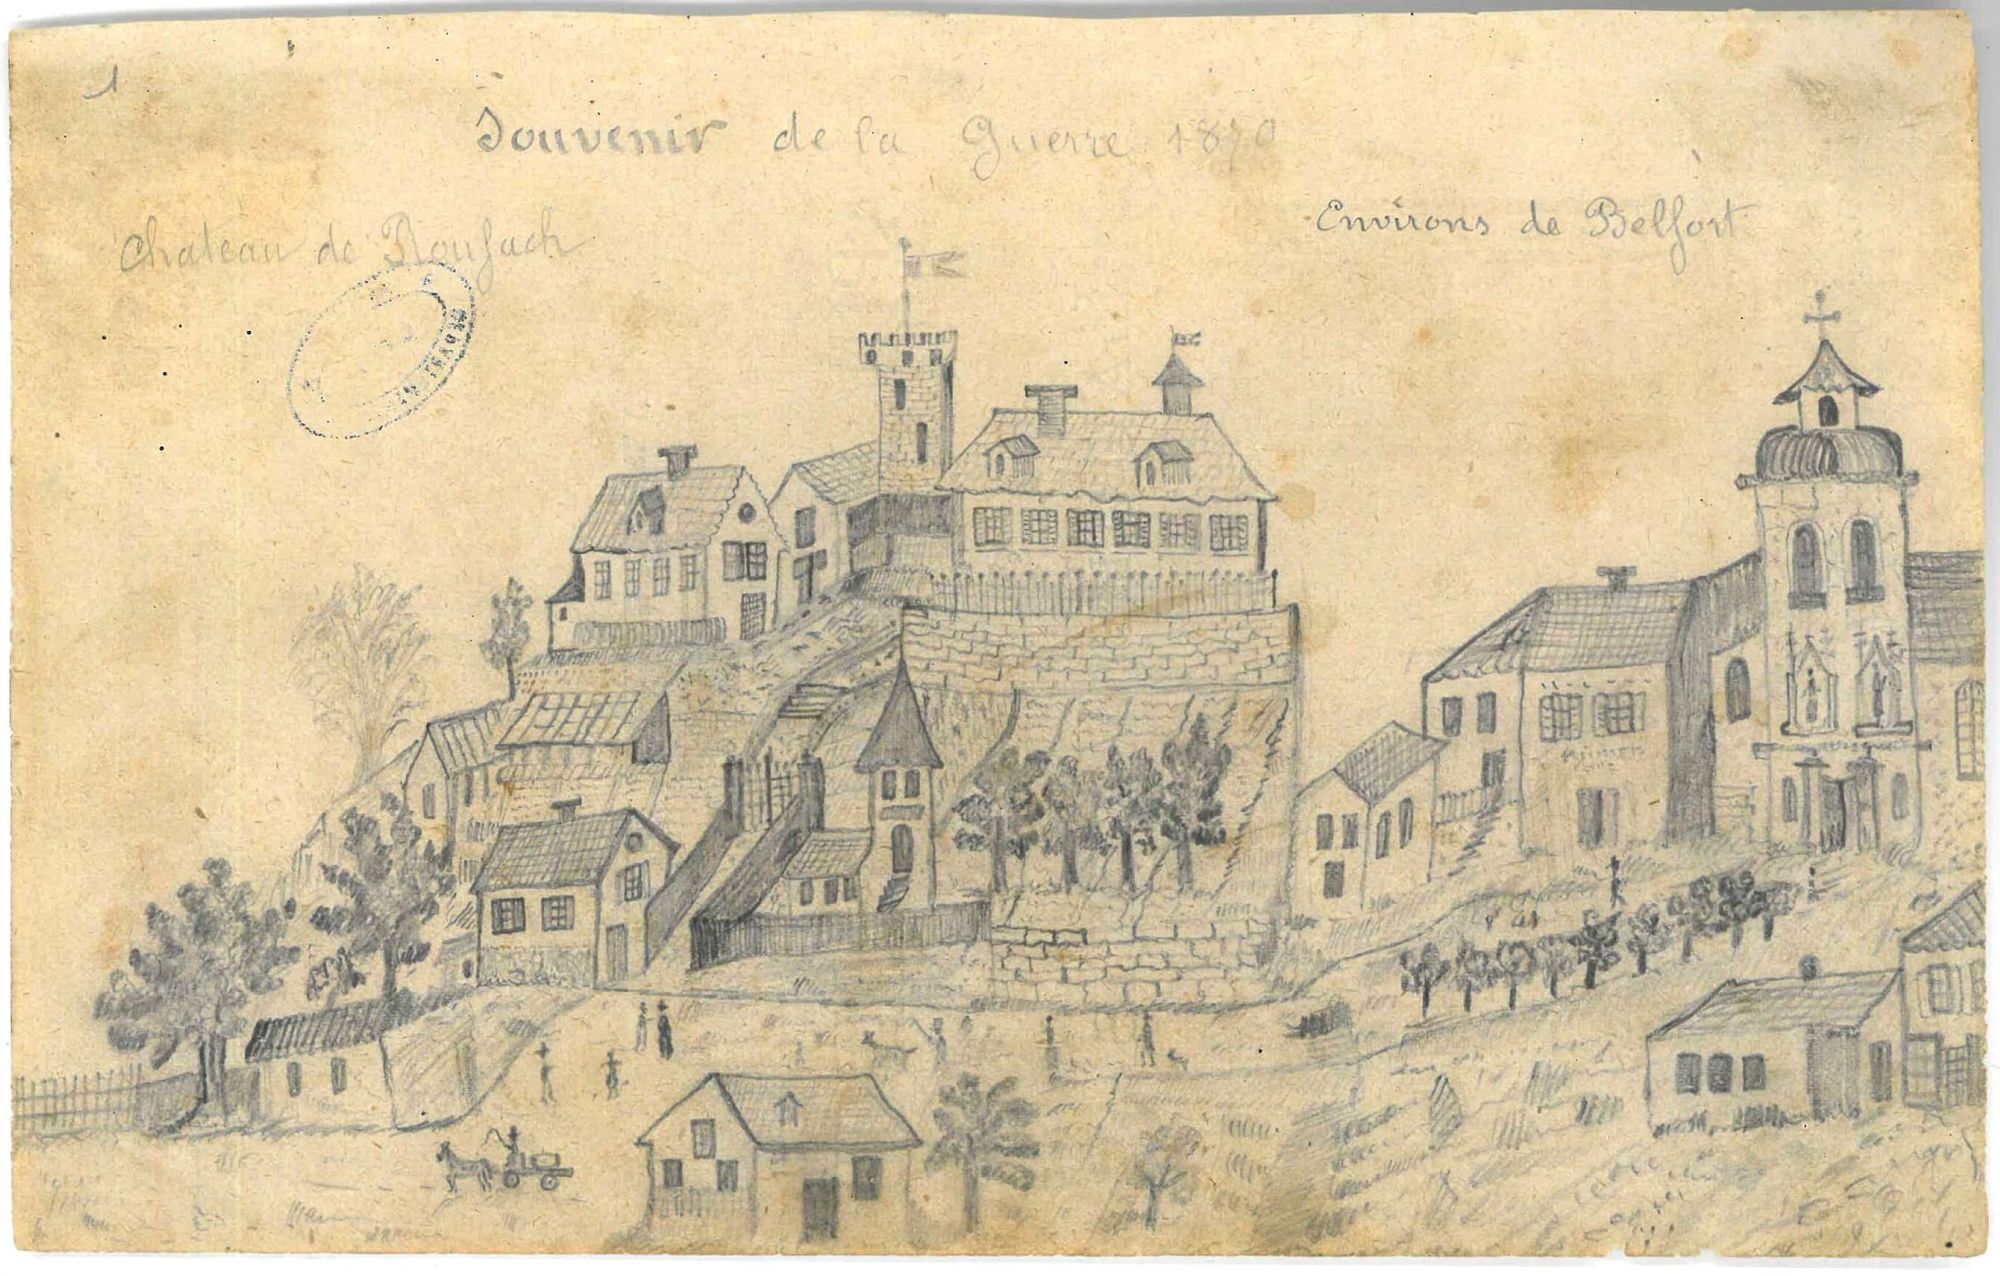 1
Souvenir de la Guerre 1870
Chateau de Roufach
Environs de Belfort